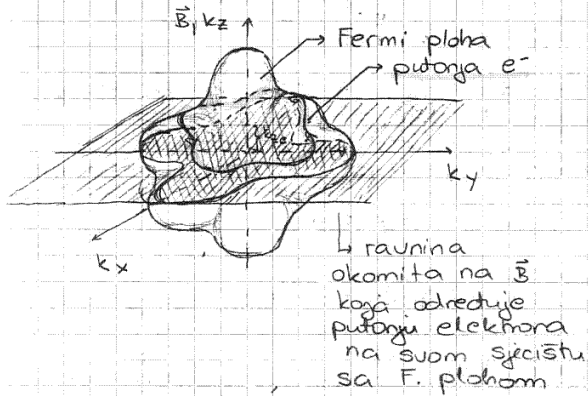 B⃗, kz
Fermi ploha
putanja e⁻
ky
kx
ravnina
okomita na B⃗
koja određuje
putanju elektrona
na svom sjecištu
sa F. plohom